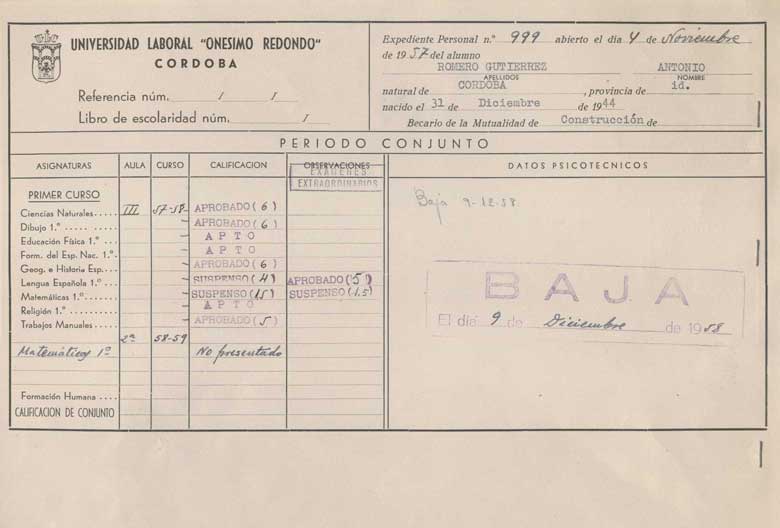 UNIVERSIDAD LABORAL "ONESIMO REDONDO"
CORDOBA
Referencia núm. / /
Libro de escolaridad núm. /
Expediente Personal n.º 999 abierto el día 4 de Noviembre
de 1957 del alumno
ROMERO GUTIERREZ ANTONIO
APELLIDOS NOMBRE
natural de CORDOBA , provincia de id.
nacido el 31 de Diciembre de 1944
Becario de la Mutualidad de Construcción de
PERIODO CONJUNTO
ASIGNATURAS AULA CURSO CALIFICACION OBSERVACIONES DATOS PSICOTECNICOS
EXAMENES
EXTRAORDINARIOS
PRIMER CURSO
Ciencias Naturales III 57-58 APROBADO (6)
Dibujo 1.º - APROBADO (6)
Educación Física 1.º - APTO
Form. del Esp. Nac. 1.º - APTO
Geog. e Historia Esp. - APROBADO (6)
Lengua Española 1.º - SUSPENSO (4) APROBADO (5)
Matemáticas 1.º - SUSPENSO (1,5) SUSPENSO (1.5)
Religión 1.º - APTO
Trabajos Manuales - APROBADO (5)
Matemáticas 1º 2ª 58-59 No presentado
Formación Humana
CALIFICACION DE CONJUNTO
Baja 9-12-58
BAJA
El día 9 de Diciembre de 1958